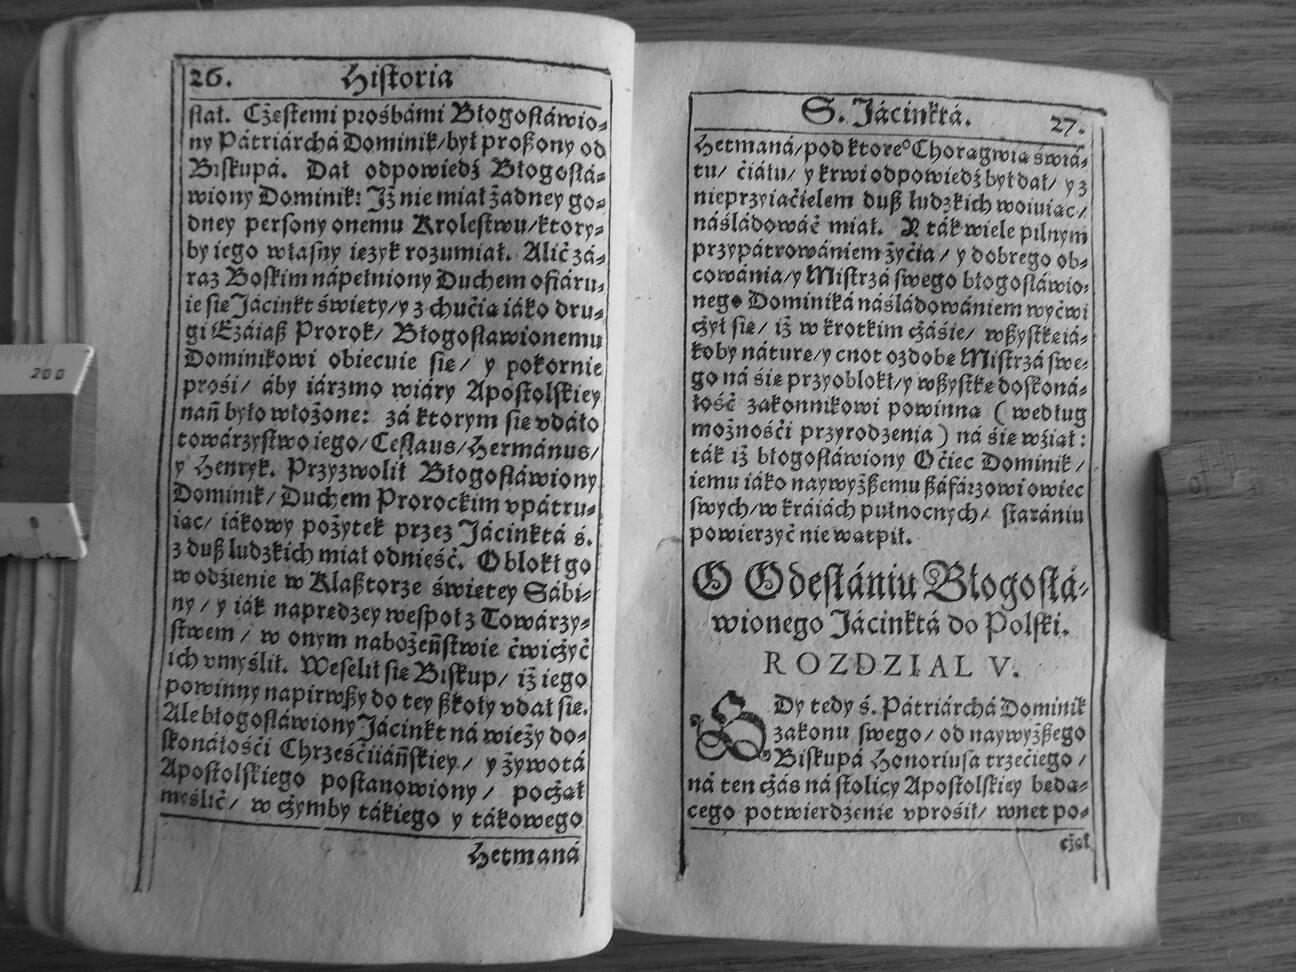 26. Historia
stał. Cżęstemi prośbámi Błogosłáwio⸗
ny Pátriárchá Dominik/ był proßony od
Biskupá. Dał odpowiedź Błogosłá⸗
wiony Dominik: Iż nie miał żadney go⸗
dney persony onemu Krolestwu/ ktory⸗
by iego własny ięzyk rozumiał. Alić zá⸗
raz Boskim nápełniony Duchem ofiáru⸗
ie się Jácinkt święty/ y z chućią iáko dru⸗
gi Ezáiaß Prorok/ Błogosławionemu
Dominikowi obiecuie się/ y pokornie
prośi/ áby iárzmo wiáry Apostolskiey
nań było włożone: zá ktorym się vdáło
towárzystwo iego/ Ceslaus/ Hermánus/
y Henryk. Przyzwolił Błogosłáwiony
Dominik/ Duchem Prorockim vpátru⸗
iąc/ iákowy pożytek przez Jácinktá ś.
z duß ludzkich miał odnieść. Oblokł go
w odźienie w Klaßtorze świętey Sábi⸗
ny/ y iák naprędzey wespoł z Towárzy⸗
stwem/ w onym nabożeństwie ćwiczyć
ich vmyślił. Weselił się Biskup/ iż iego
powinny napirwßy do tey ßkoły vdał się.
Ale błogosłáwiony Jácinkt ná wieży do⸗
skonáłośći Chrześćiiáńskiey/ y żywotá
Apostolskiego postanowiony/ pocżął
myślić/ w cżymby tákiego y tákowego
Hetmaná
S. Jácinktá. 27.
Hetmaná/ pod ktoreº Chorągwią świá⸗
tu/ ćiáłu/ y krwi odpowiedź był dał/ y z
nieprzyiaćielem duß ludzkich woiuiąc/
náśládowáć miał. A ták wiele pilnym
przypátrowániem żyćia/ y dobrego ob⸗
cowánia/ y Mistrzá swego błogosłáwio⸗
nego Dominiká náśládowániem wyćwi
cżył się/ iż w krotkim cżáśie/ wßystkę iá⸗
koby náturę/ y cnot ozdobę Mistrzá swe⸗
go ná się przyoblokł/ y wßystkę doskoná⸗
łość zakonnikowi powinną (według
możnośći przyrodzenia) ná się wźiął:
ták iż błogosłáwiony Oćiec Dominik/
iemu iáko naywyżßemu ßáfárzowi owiec
swych/ w kráiách pułnocnych/ stáránia
powierzyć nie wątpił.
O Odesłániu Błogosłá⸗
wionego Jácinktá do Polski.
ROZDZIAL V.
GDy tedy ś. Pátriárchá Dominik
zakonu swego/ od naywyżßego
Biskupá Honoriusa trzećiego/
ná ten cżás ná stolicy Apostolskiey będą⸗
cego potwierdzenie vprośił/ wnet po⸗
cżął